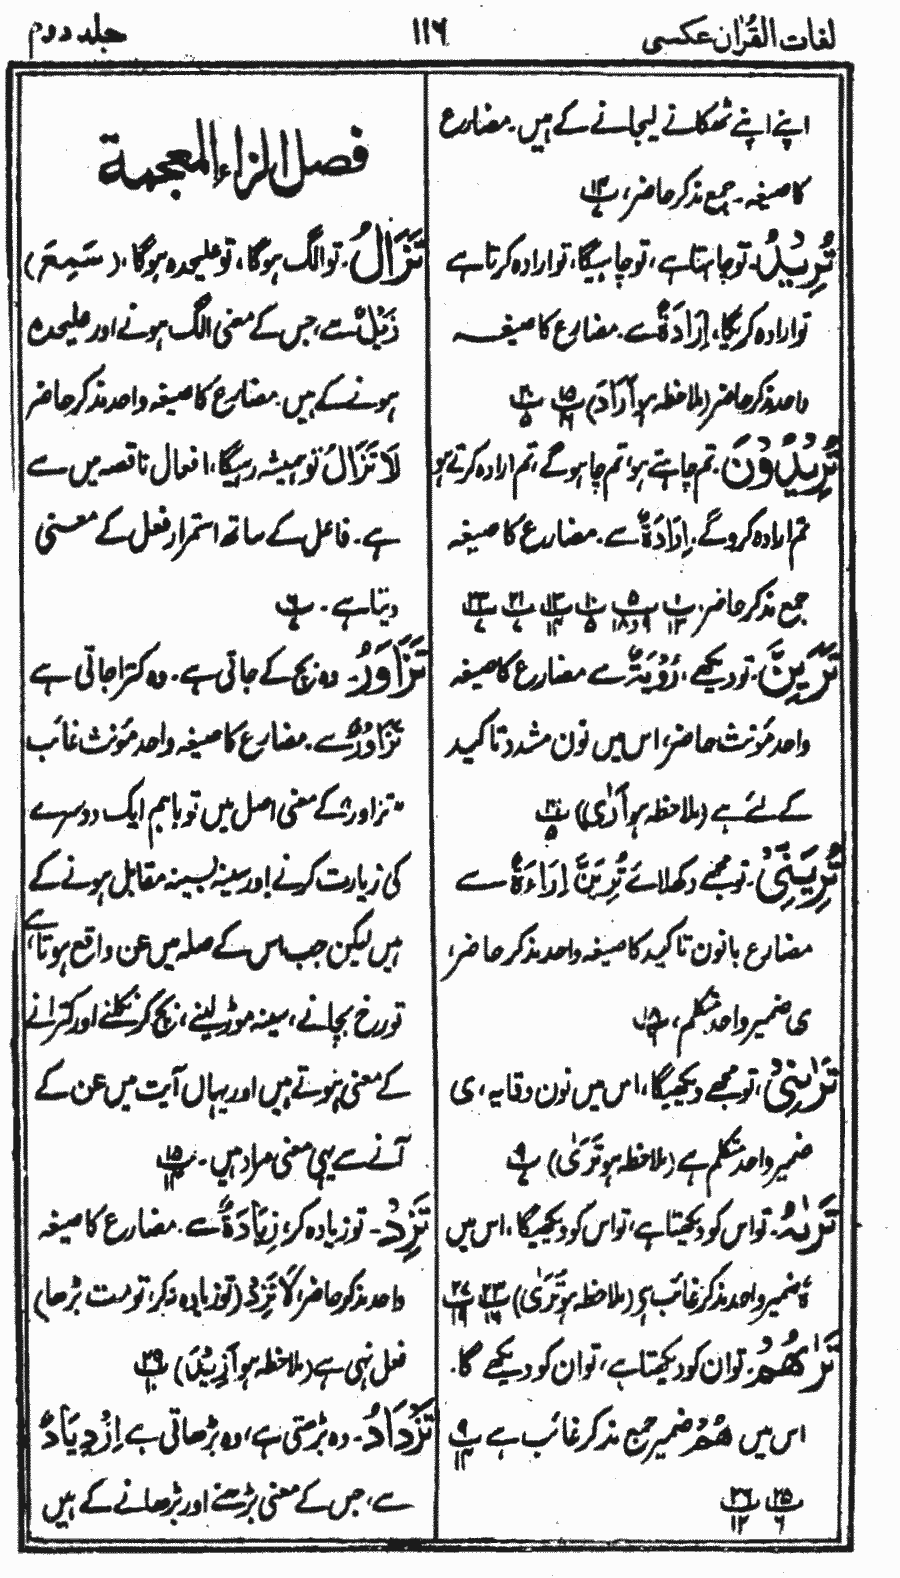 لغات القرآن عکسی
۱۱۶
جلد دوم
اپنے اپنے ٹھکانے لیجانے کے ہیں۔ مضارع
کا صیغہ۔ جمع مذکر حاضر،
تُرِیْدُ۔ تو چاہتا ہے، تو چاہیگا، تو ارادہ کرتا ہے
تو ارادہ کریگا، اِرَادَةٌ سے۔ مضارع کا صیغہ
واحد مذکر حاضر (ملاحظہ ہو اَرَادَ)
تُرِیْدُوْنَ۔ تم چاہتے ہو، تم چاہو گے، تم ارادہ کرتے ہو
تم ارادہ کرو گے۔ اِرَادَةٌ سے۔ مضارع کا صیغہ
جمع مذکر حاضر۔
تَرَیِنَّ۔ تو دیکھے، رُؤْیَةٌ سے مضارع کا صیغہ
واحد مؤنث حاضر، اس میں نون مشدد تاکید
کے لئے ہے (ملاحظہ ہو اَرٰی)
تُرِیَنِّیْ۔ تو مجھے دکھلائے تُرِیَنَّ اِرَاءَةٌ سے
مضارع بانون تاکید کا صیغہ واحد مذکر حاضر،
ی ضمیر واحد متکلم،
تَرٰىنِیْ، تو مجھے دیکھیگا، اس میں نون وقایہ، ی
ضمیر واحد متکلم ہے (ملاحظہ ہو تَرٰی)
تَرٰىهُ۔ تو اس کو دیکھتا ہے، تو اس کو دیکھیگا، اس میں
هٗ ضمیر واحد مذکر غائب ہے (ملاحظہ ہو تَرٰی)
تَرٰىهُمْ۔ تو ان کو دیکھتا ہے، تو ان کو دیکھے گا۔
اس میں هُمْ ضمیر جمع مذکر غائب ہے
فصل الزاء المعجمة
تَزَالُ۔ تو الگ ہوگا، تو علیحدہ ہوگا، (سَمِعَ)
زَیْلٌ سے، جس کے معنی الگ ہونے اور علیحدہ
ہونے کے ہیں۔ مضارع کا صیغہ واحد مذکر حاضر
لَا تَزَالُ تو ہمیشہ رہیگا، افعال ناقصہ میں سے
ہے۔ فاعل کے ساتھ استمرار فعل کے معنی
دیتا ہے۔
تَزٰوَرُ۔ وہ بچ کے جاتی ہے۔ وہ کتراجاتی ہے
تَزَاوُرٌ سے۔ مضارع کا صیغہ واحد مؤنث غائب
تزاور کے معنی اصل میں تو باہم ایک دوسرے
کی زیارت کرنے اور سینہ بسینہ مقابل ہونے کے
ہیں لیکن جب اس کے صلہ میں عن واقع ہوتا ہے،
تو رخ بچانے، سینہ موڑ لینے، بچ کر نکلنے اور کترانے
کے معنی ہوتے ہیں اور یہاں آیت میں عن کے
آنے سے یہی معنی مراد ہیں۔
تَزِدْ۔ تو زیادہ کر، زِیَادَةٌ سے۔ مضارع کا صیغہ
واحد مذکر حاضر، لَا تَزِدْ (تو زیادہ نہ کر، تو مت بڑھا)
فعل نہی ہے (ملاحظہ ہو اَزِیْدَ)
تَزْدَادُ۔ وہ بڑھتی ہے، وہ بڑھاتی ہے اِزْدِیَادٌ
سے، جس کے معنی بڑھنے اور بڑھانے کے ہیں